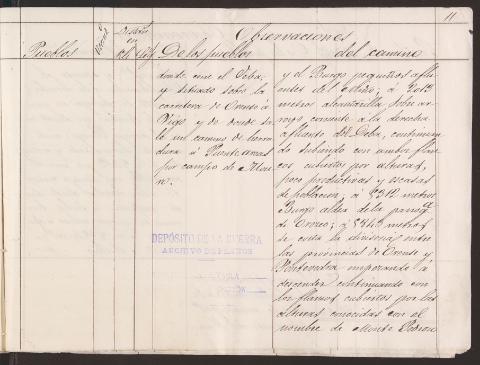 11
Observaciones
Pueblos
De los pueblos
del camino
donde cruza el Deba,
y situado sobre la
carretera de Orense á
Vigo y de donde sa-
le un camino de herra-
dura á Puenteareas
por campo de
y el Burgo pequeños aflu-
entes del; á 2013
metros alcantarilla sobre ar-
royo corriente á la derecha
afluente del Deba, continuan-
do subiendo con ambos flan-
cos cubiertos por alturas,
poco productivas y escasas
de poblacion; á 5312 metros
Burgo aldea de la parroqª
de; á 5843 metros
se cruza la divisoria entre
las provincias de Orense y
Pontevedra empezando á
descender continuando con
los flancos cubiertos por las
alturas conocidas con el
nombre de Monte Pedroso
DEPÓSITO DE LA GUERRA
ARCHIVO DE PLANOS